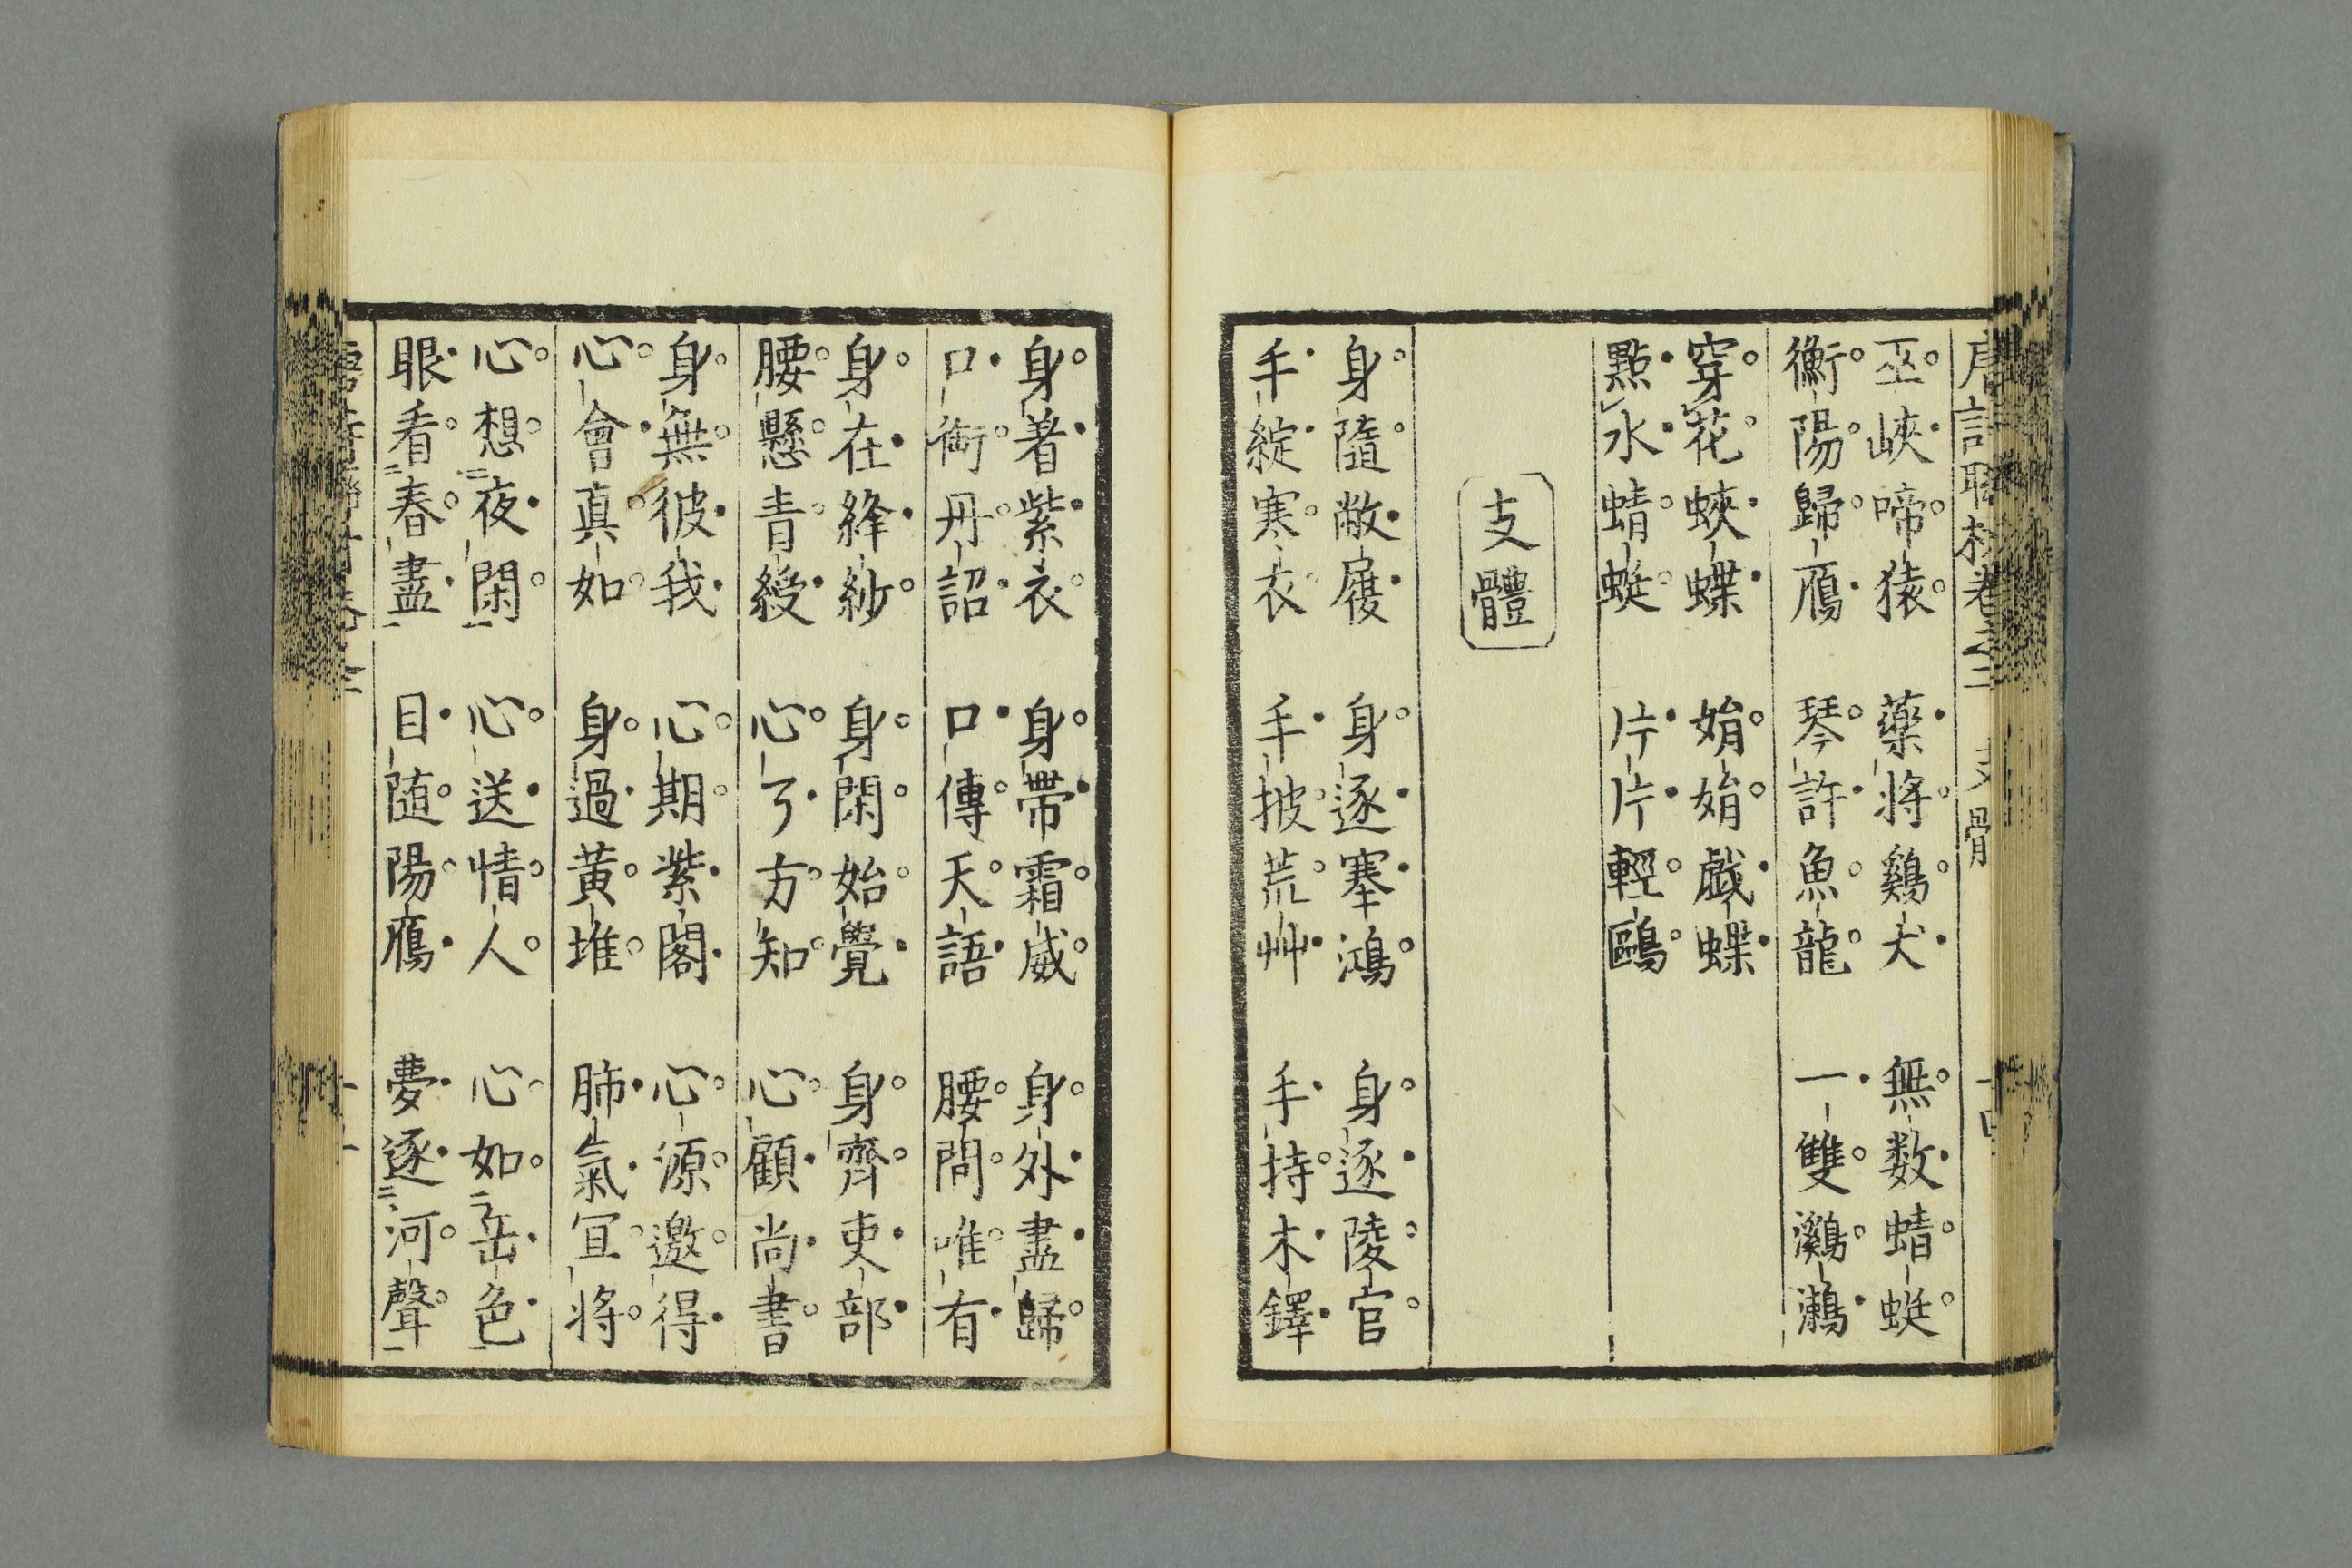 巫峽啼猿　藥將鷄犬　無数蜻蜓
衡陽歸鴈　琴許魚龍　一雙鸂鷘
穿花蛺蝶　娟娟戯蝶
點水蜻蜓　片片輕鷗
支體
身隨敝履　身逐塞鴻　身逐陵官
手綻寒衣　手披荒艸　手持木鐸
身着紫衣　身帶霜威　身外盡歸
口銜丹詔　口傳天語　腰間唯有
身在絳紗　身閑始覺　身齊吏部
腰懸青綬　心了方知　心顧尚書
身無彼我　心期紫閣　心源邀得
心會真如　身過黄堆　肺氣冝將
心想夜閑　心送情人　心如岳色
眼看春盡　目随陽鴈　夢逐河聲